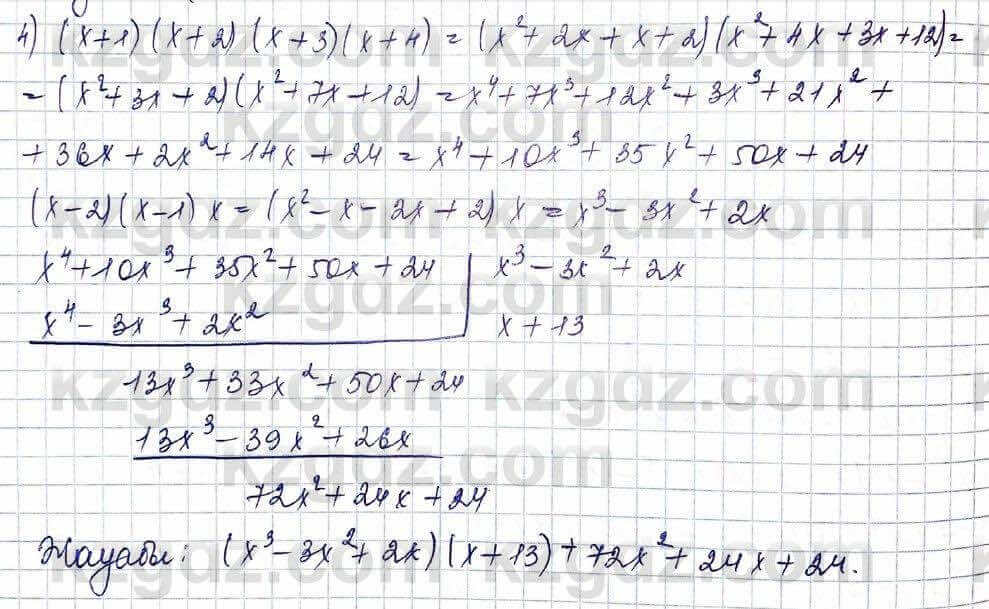 4) (x+1)(x+2)(x+3)(x+4) = (x²+2x+x+2)(x²+4x+3x+12)=
= (x²+3x+2)(x²+7x+12) = x⁴+7x³+12x²+3x³+21x²+
+36x+2x²+14x+24 = x⁴+10x³+35x²+50x+24
(x-2)(x-1)x = (x²-x-2x+2)x = x³-3x²+2x
x⁴+10x³+35x²+50x+24 | x³-3x²+2x
x⁴-3x³+2x² | x+13
13x³+33x²+50x+24
13x³-39x²+26x
72x²+24x+24
Жауабы: (x³-3x²+2x)(x+13)+72x²+24x+24.
kzgdz.com